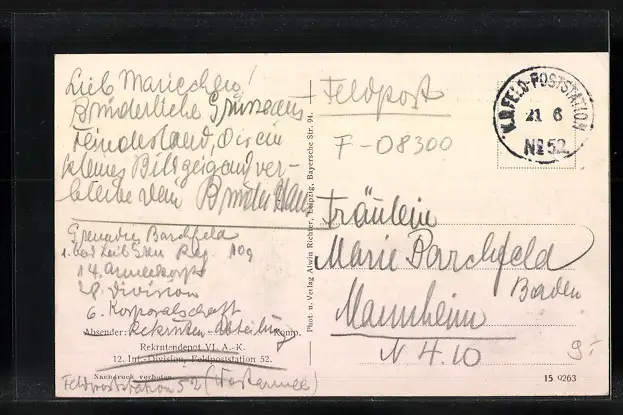 Lieb Mariechen!
Brüderliche Grüsse aus
Feindesland, Dir ein
kleines Bild zeigend ver-
bleibe dein Bruder Hans
Grenadier Barchfeld
1. bad Leib Gren Reg. 109
14. Armeekorps
28. Division
6. Korporalschaft
Absender: Rekruten Abteilung Komp.
Rekrutendepot VI. A.-K.
12. Inf.-Division, Feldpoststation 52.
Nachdruck verboten
Feldpoststation 52 (Westarmee)
Phot u. Verlag Alwin Richter, Leipzig, Bayersche Str. 94.
Feldpost
F-08300
K.D.FELD-POSTSTATION
21 6
No 52
Fräulein
Marie Barchfeld
Mannheim
Baden
N 4.10
9.-
15 9263